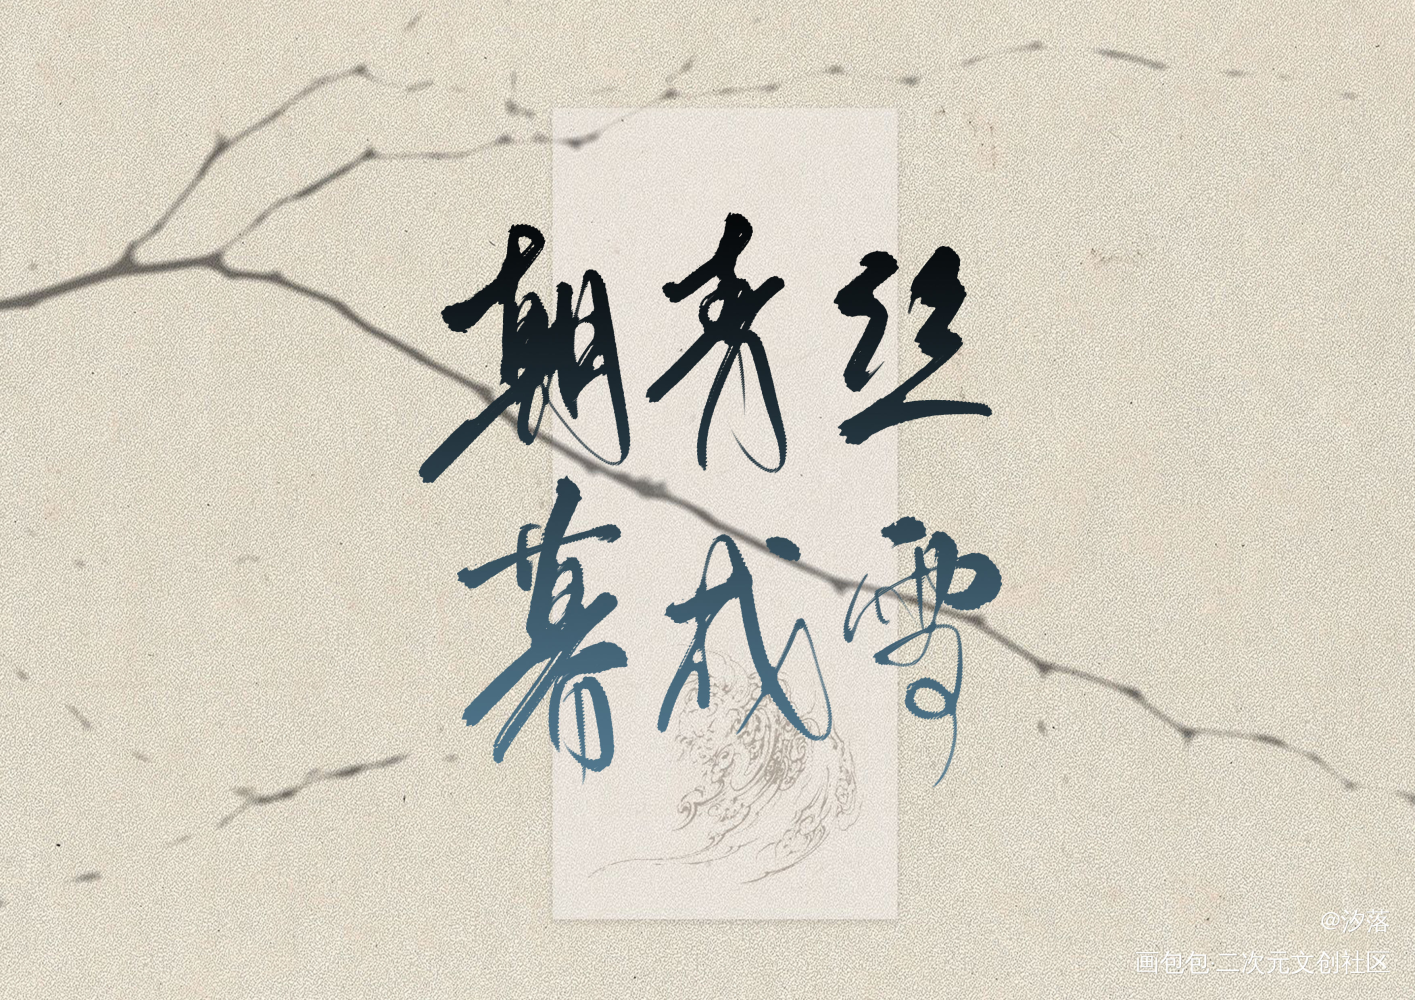 朝青丝
暮成雪
@汐落
画包包·二次元文创社区